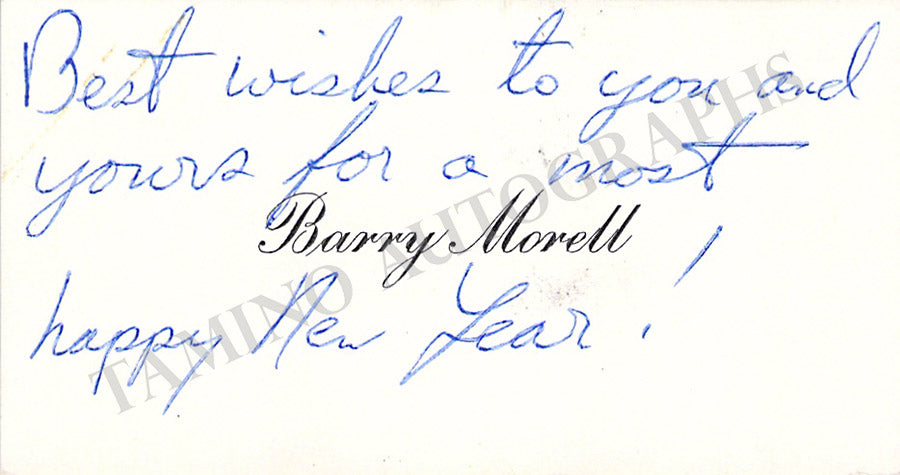 Best wishes to you and
yours for a most
Barry Morell
happy New Year!
TAMINO AUTOGRAPHS